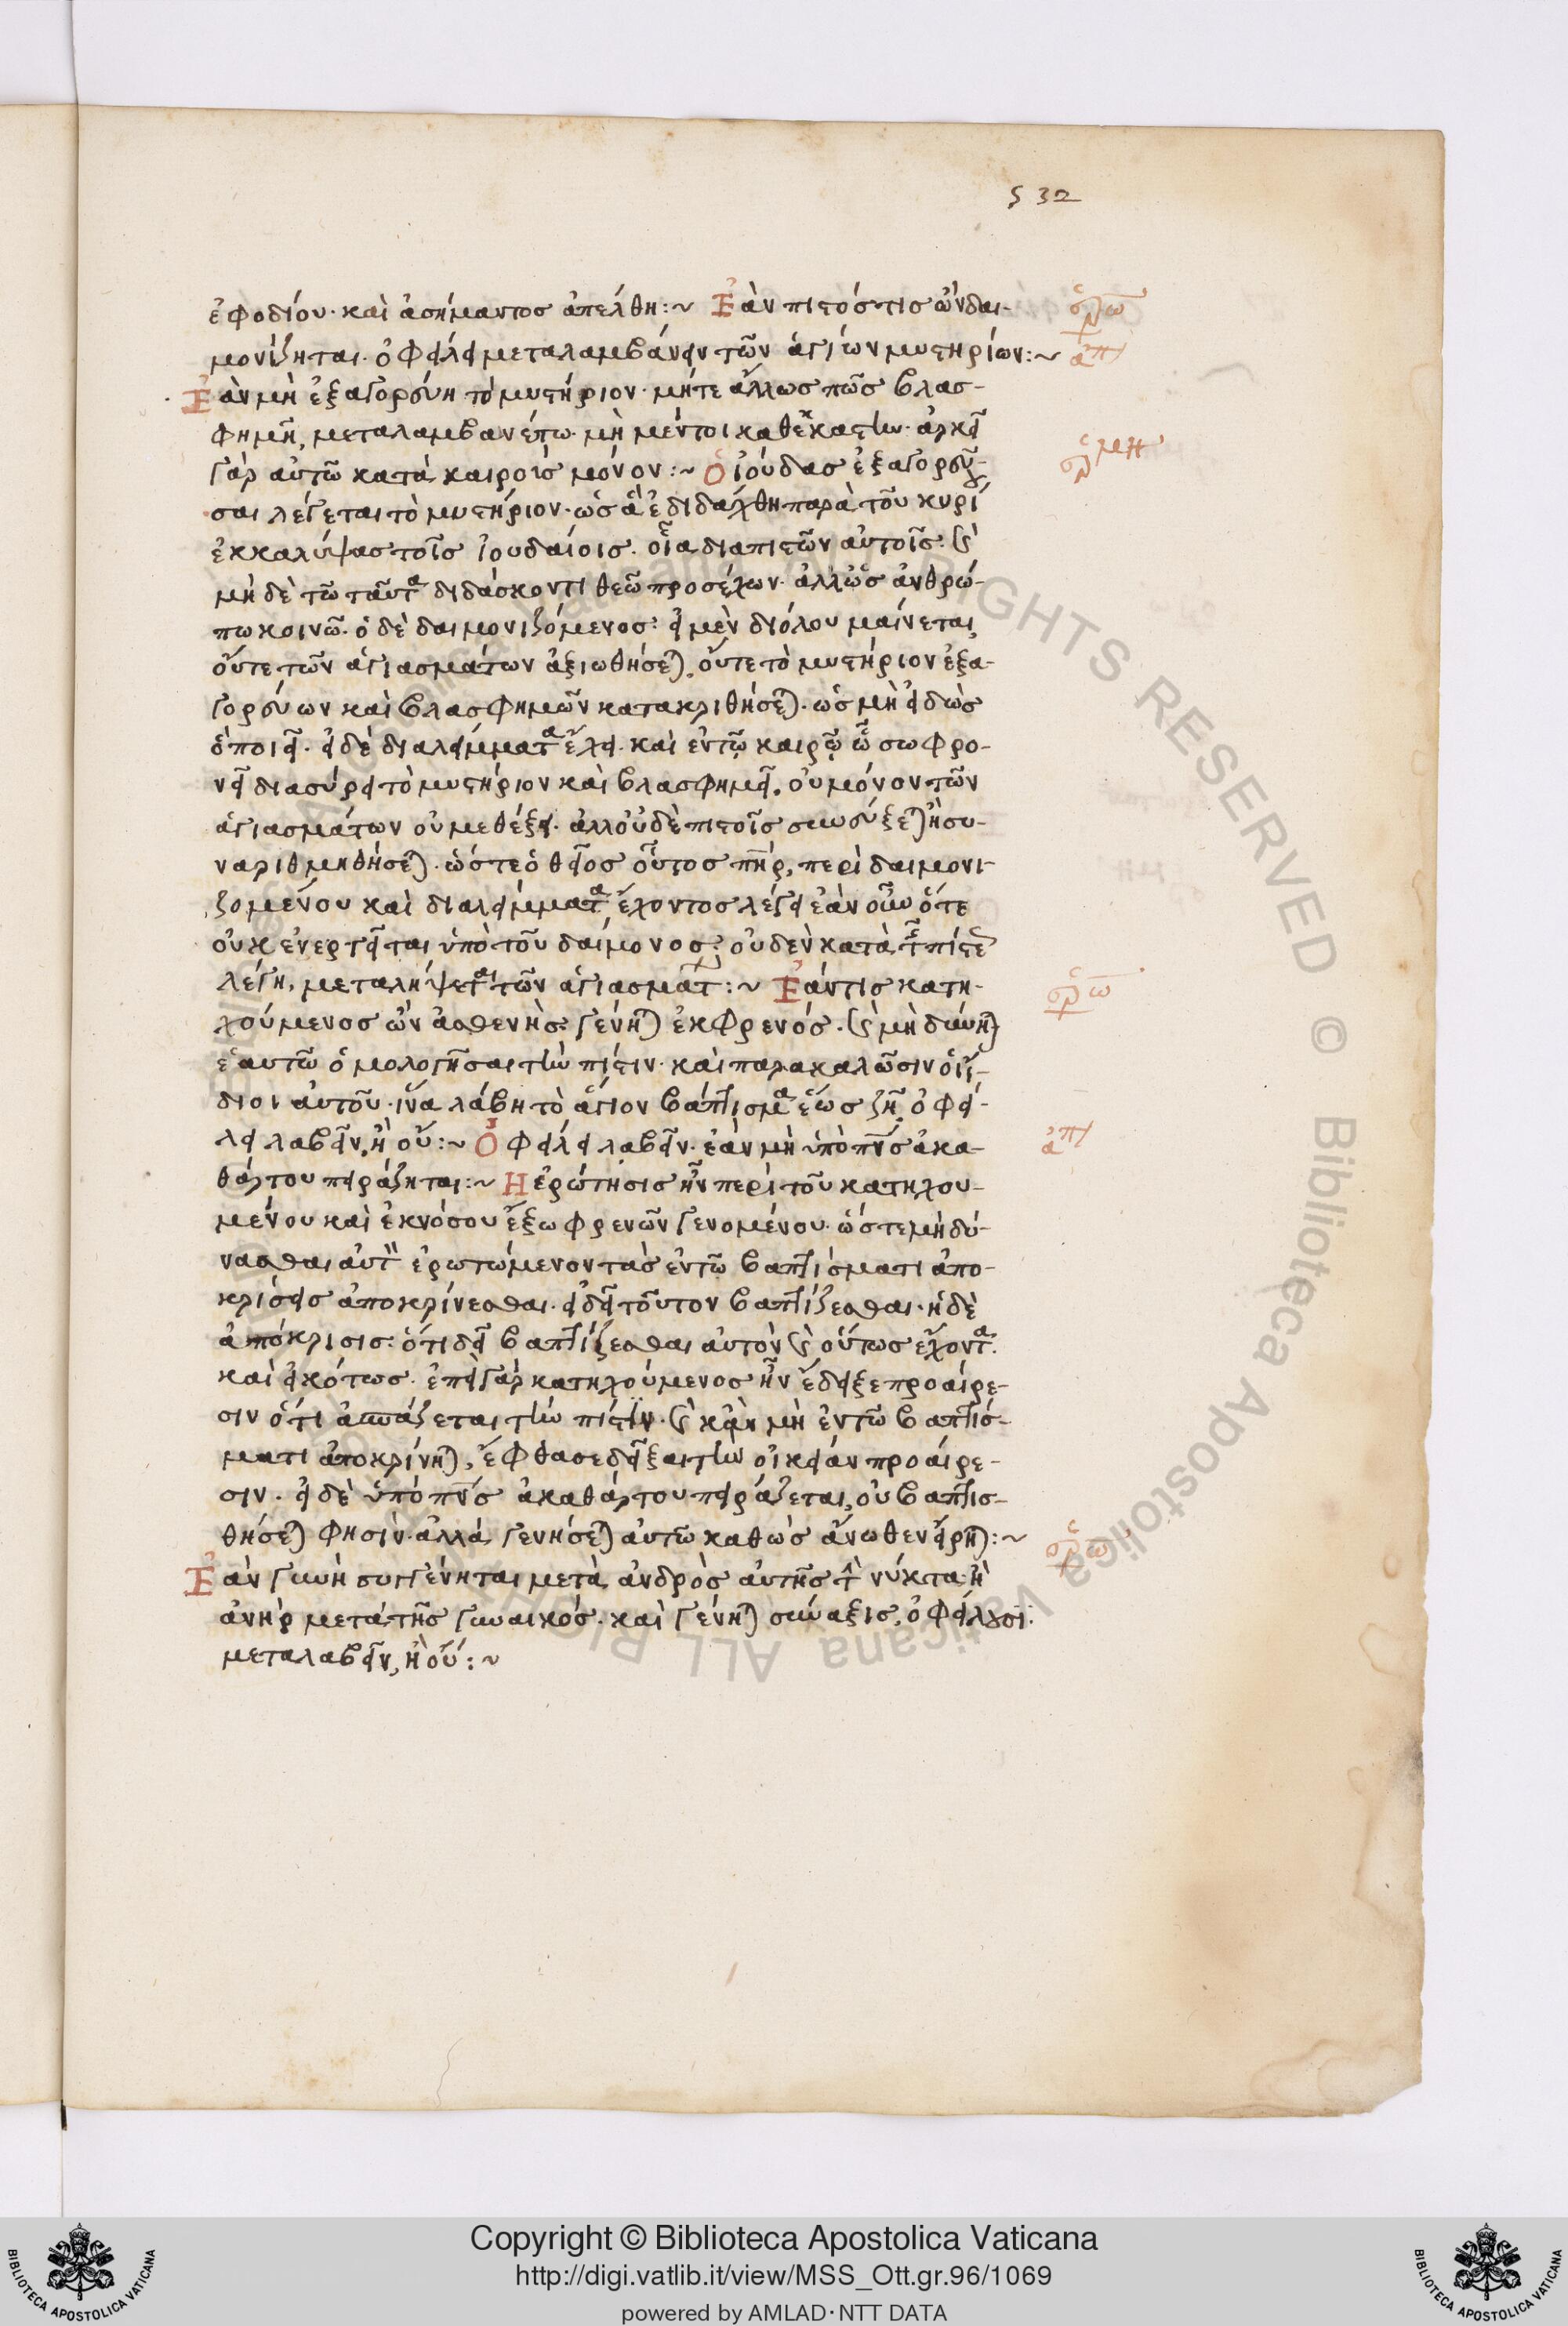 532
ἐφοδίου· καὶ ἀσήμαντος ἀπέλθη:~ Ἐὰν πιστός τις ὢν δαι-
μονίζηται· ὀφείλει μεταλαμβάνειν τῶν ἁγίων μυστηρίων:~
Ἐὰν μὴ ἐξαγορεύη τὸ μυστήριον· μήτε ἄλλως πῶς βλασ-
φημῆ, μεταλαμβανέτω· μὴ μέντοι καθ' ἑκάστην· ἀρκεῖ
γὰρ αὐτῶ κατὰ καιροὺς μόνον:~ Ὁ ἰούδας ἐξαγορεῦ-
σαι λέγεται τὸ μυστήριον· ὡς ἃ ἐδιδάχθη παρὰ τοῦ κυρί
ἐκκαλύψας τοῖς ἰουδαίοις. οἷα διαπιστῶν αὐτοῖς· καὶ
μὴ δὲ τῶ ταῦτα διδάσκοντι θεῶ προσέχων· ἀλλ' ὡς ἀνθρώ-
πω κοινῶ· ὁ δὲ δαιμονιζόμενος· εἰ μὲν διόλου μαίνεται,
οὔτε τῶν ἁγιασμάτων ἀξιωθήσεται, οὔτε τὸ μυστήριον ἐξα-
γορεύων καὶ βλασφημῶν κατακριθήσεται· ὡς μὴ εἰδὼς
ὃ ποιεῖ· εἰ δὲ διαλείμματα ἔχει· καὶ ἐν τῷ καιρῷ ᾧ σωφρο-
νεῖ διασύρει τὸ μυστήριον καὶ βλασφημεῖ, οὐ μόνον τῶν
ἁγιασμάτων οὐ μεθέξει· ἀλλ' οὐδὲ πιστοῖς συνεύξεται ἢ συ-
ναριθμηθήσεται· ὥστε ὁ θεῖος οὗτος πηρ, περὶ δαιμονι-
ζομένου καὶ διαλείμματα ἔχοντος λέγει ἐὰν οὖν ὅτε
οὐκ ἐνεργεῖται ὑπὸ τοῦ δαίμονος· οὐδὲν κατὰ τῆς πίστεως
λέγη, μεταλήψεται τῶν ἁγιασμάτων:~ Ἐάν τις κατη-
χούμενος ὢν ἀσθενὴς γένηται ἐκφρενός· καὶ μὴ δύνηται
ἑαυτῶ ὁμολογῆσαι τὴν πίστιν· καὶ παρακαλῶσιν οἱ ἴ-
διοι αὐτοῦ· ἵνα λάβη τὸ ἅγιον βάπτισμα ἕως ζῆ, ὀφεί-
λει λαβεῖν, ἢ οὔ:~ Ὀφείλει λαβεῖν· ἐὰν μὴ ὑπὸ πνς ἀκα-
θάρτου πειράζηται:~ Η ἐρώτησις ἦν περὶ τοῦ κατηχου-
μένου καὶ ἐκ νόσου ἔξω φρενῶν γενομένου· ὥστε μὴ δύ-
νασθαι αὐτὸν ἐρωτώμενον τὰς ἐν τῶ βαπτίσματι ἀπο-
κρίσεις ἀποκρίνεσθαι· εἰ δεῖ τοῦτον βαπτίζεσθαι· ἡ δὲ
ἀπόκρισις· ὅτι δεῖ βαπτίζεσθαι αὐτὸν καὶ οὕτως ἔχοντα.
καὶ εἰκότως· ἐπεὶ γὰρ κατηχούμενος ἦν ἔδειξε προαίρε-
σιν ὅτι ἀσπάζεται τὴν πίστιν· καὶ κἂν μὴ ἐν τῶ βαπτίσ-
ματι ἀποκρίνηται, ἔφθασε δεῖξαι τὴν οἰκείαν προαίρε-
σιν· εἰ δὲ ὑπὸ πνς ἀκαθάρτου πειράζεται, οὐ βαπτισ-
θήσεται φησίν· ἀλλὰ γενήσεται αὐτῶ καθὼς ἄνωθεν εἴρηται:~
Ἐὰν γυνὴ συγγένηται μετὰ ἀνδρὸς αὐτῆς τὴν νύκτα· ἢ
ἀνὴρ μετὰ τῆς γυναικός· καὶ γένηται σύναξις, ὀφείλουσι
μεταλαβεῖν, ἢ οὔ:~
Copyright © Biblioteca Apostolica Vaticana
http://digi.vatlib.it/view/MSS_Ott.gr.96/1069
powered by AMLAD·NTT DATA
BIBLIOTECA APOSTOLICA VATICANA
BIBLIOTECA APOSTOLICA VATICANA